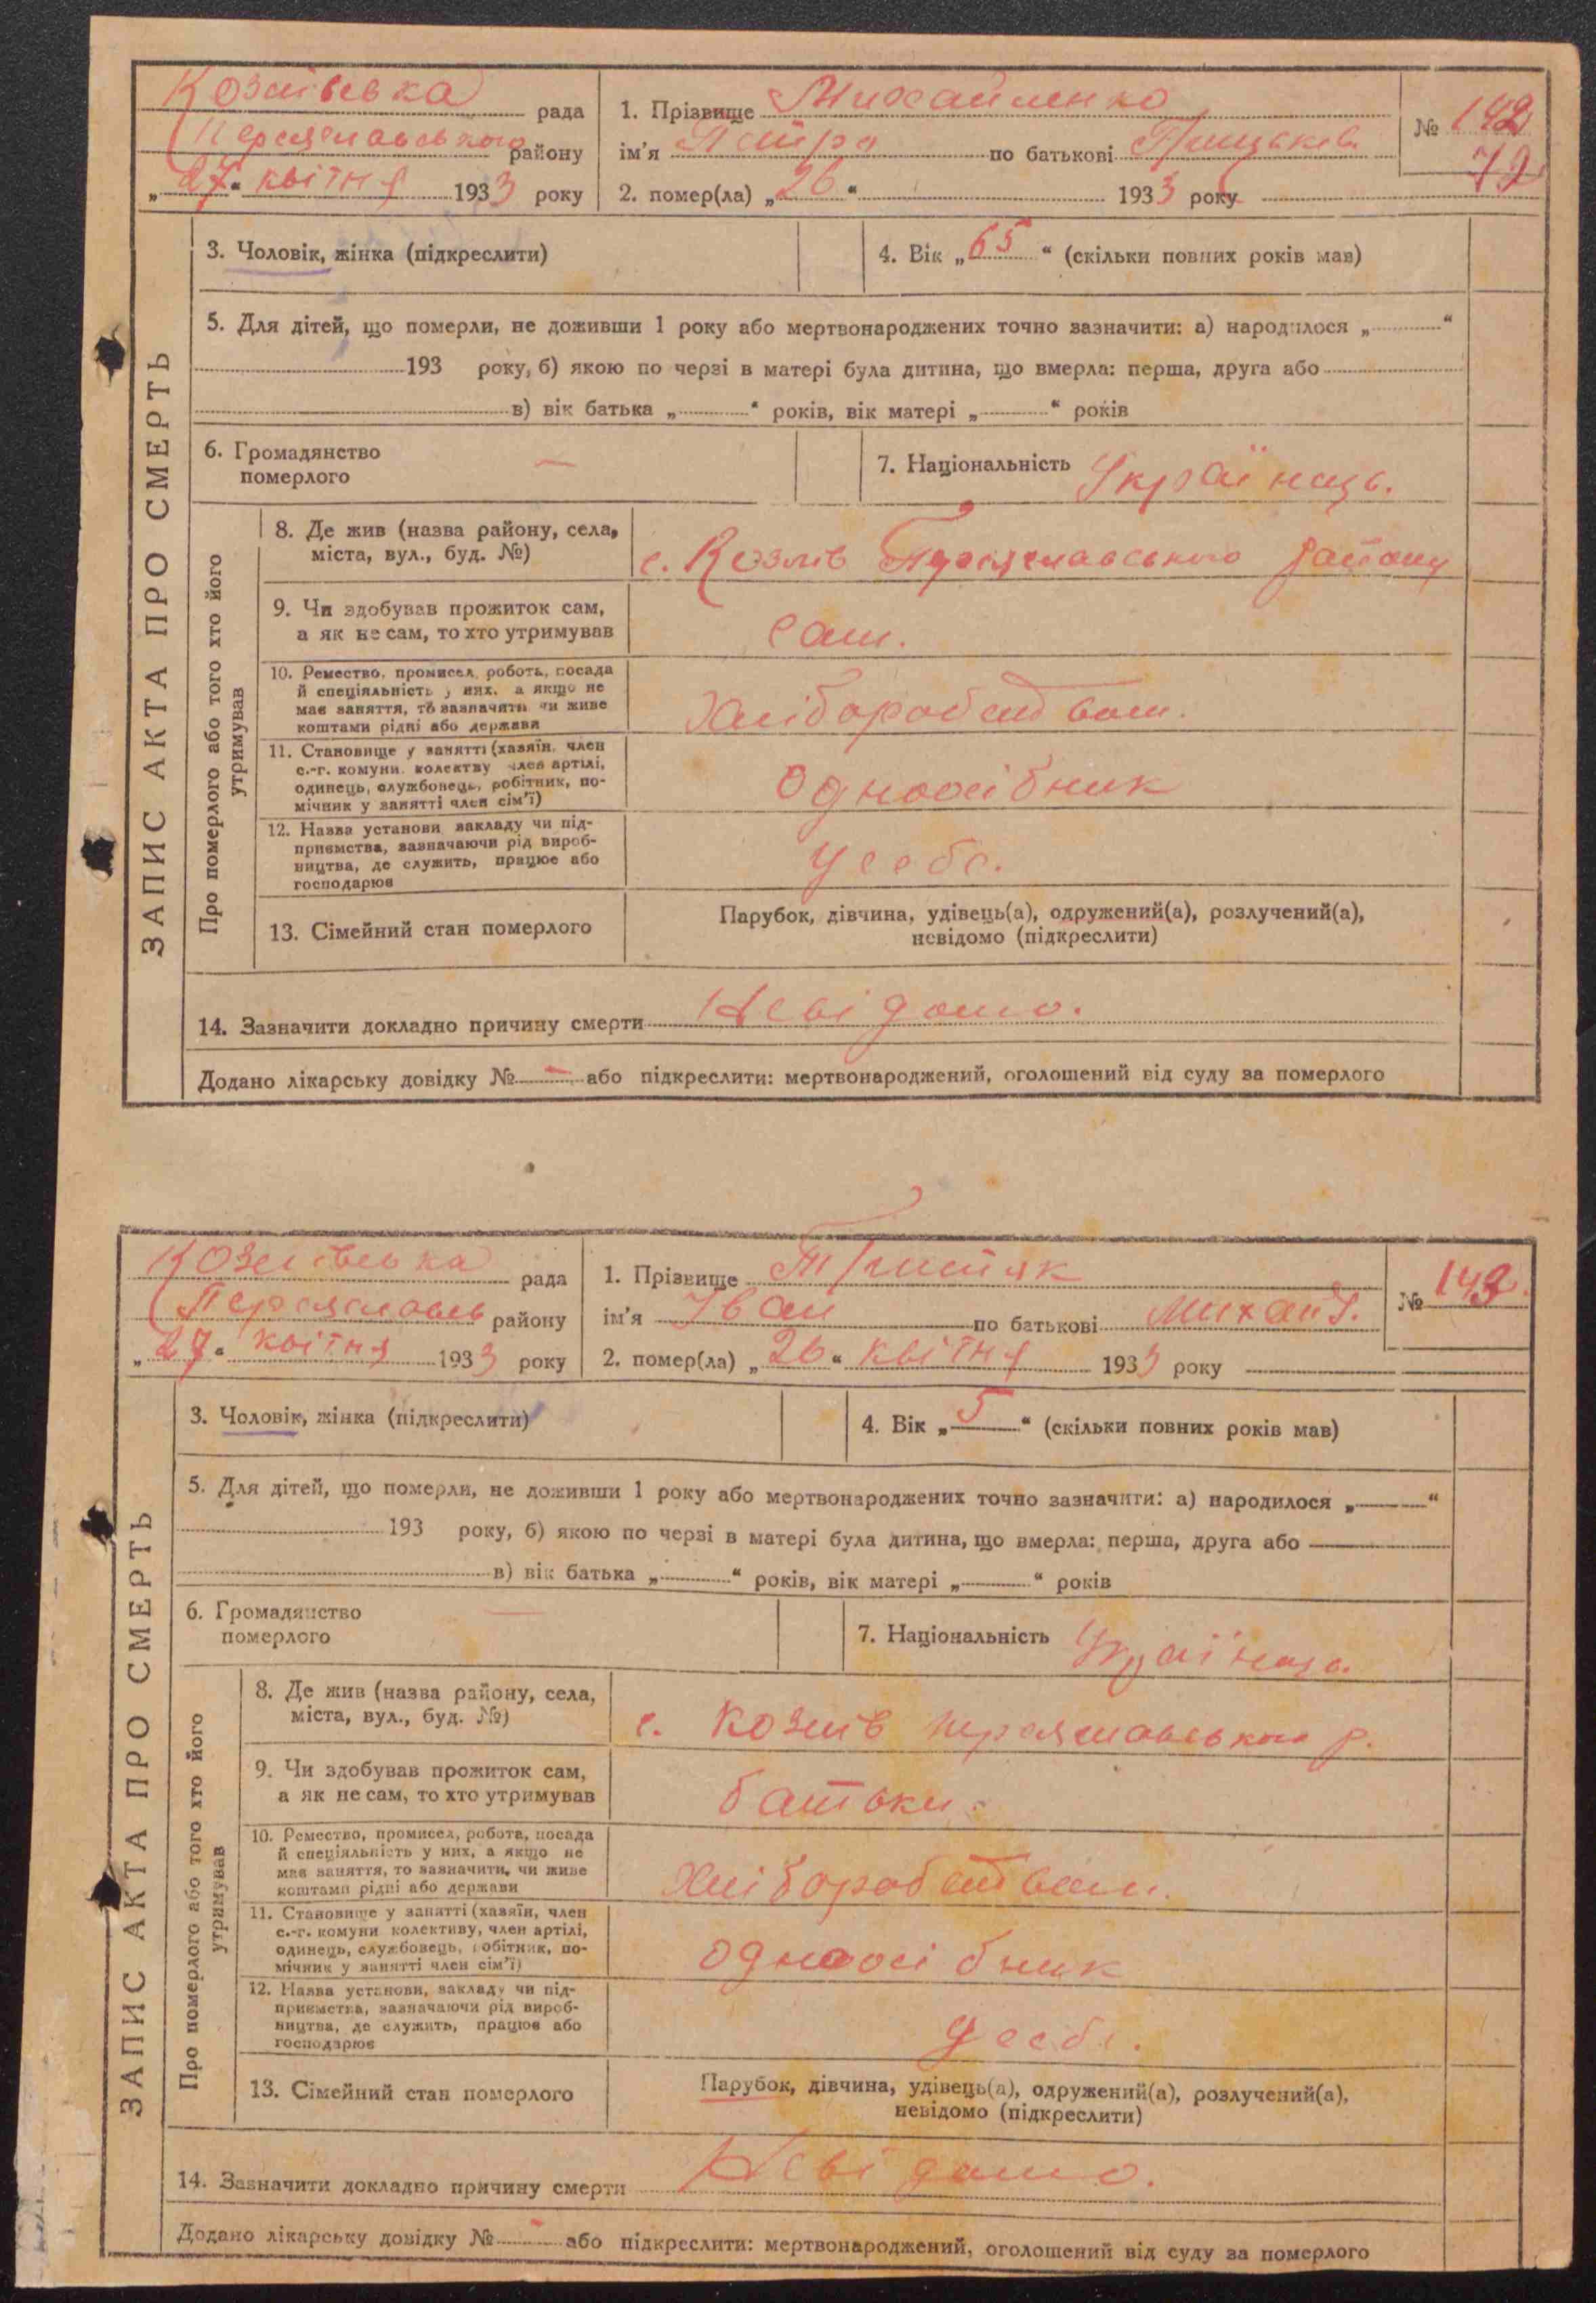 Козлівська рада
Переяславського району
„27“ квітня 1933 року
1. Прізвище Михайленко
ім'я Петро по батькові
2. помер(ла) „26“ 1933 року
№ 142
72
3. Чоловік, жінка (підкреслити)
4. Вік „65“ (скільки повних років мав)
5. Для дітей, що померли, не доживши 1 року або мертвонароджених точно зазначити: а) народилося „ “
193 року, б) якою по черзі в матері була дитина, що вмерла: перша, друга або
в) вік батька „ “ років, вік матері „ “ років
6. Громадянство
померлого —
7. Національність Українець.
ЗАПИС АКТА ПРО СМЕРТЬ
Про померлого або того хто його
утримував
8. Де жив (назва району, села,
міста, вул., буд. №)
с. Козлів Переяславського району
9. Чи здобував прожиток сам,
а як не сам, то хто утримував
Сам.
10. Ремество, промисел, робота, посада
й спеціяльність у них, а якщо не
має заняття, то зазначити чи живе
коштами рідні або держави
Хліборобством.
11. Становище у занятті (хазяїн, член
с.-г. комуни, колективу член артілі,
одинець, службовець, робітник, по-
мічник у занятті член сім'ї)
Одноосібник
12. Назва установи, закладу чи під-
приємства, зазначаючи рід вироб-
ництва, де служить, працює або
господарює
У себе.
13. Сімейний стан померлого
Парубок, дівчина, удівець(а), одружений(а), розлучений(а),
невідомо (підкреслити)
14. Зазначити докладно причину смерти Невідомо.
Додано лікарську довідку № — або підкреслити: мертвонароджений, оголошений від суду за померлого
Козлівська рада
Переяславськ району
„27“ квітня 1933 року
1. Прізвище
ім'я Іван по батькові Михайл.
2. помер(ла) „26“ квітня 1933 року
№ 143
3. Чоловік, жінка (підкреслити)
4. Вік „5“ (скільки повних років мав)
5. Для дітей, що померли, не доживши 1 року або мертвонароджених точно зазначити: а) народилося „ “
193 року, б) якою по черзі в матері була дитина, що вмерла: перша, друга або
в) вік батька „ “ років, вік матері „ “ років
6. Громадянство
померлого —
7. Національність Українець.
ЗАПИС АКТА ПРО СМЕРТЬ
Про померлого або того хто його
утримував
8. Де жив (назва району, села,
міста, вул., буд. №)
с. Козлів Переяславського р.
9. Чи здобував прожиток сам,
а як не сам, то хто утримував
батьки.
10. Ремество, промисел, робота, посада
й спеціяльність у них, а якщо не
має заняття, то зазначити, чи живе
коштами рідні або держави
Хліборобством.
11. Становище у занятті (хазяїн, член
с.-г. комуни колективу, член артілі,
одинець, службовець, робітник, по-
мічник у занятті член сім'ї)
одноосібник
12. Назва установи, закладу чи під-
приємства, зазначаючи рід вироб-
ництва, де служить, працює або
господарює
У себе.
13. Сімейний стан померлого
Парубок, дівчина, удівець(а), одружений(а), розлучений(а),
невідомо (підкреслити)
14. Зазначити докладно причину смерти Невідомо.
Додано лікарську довідку № — або підкреслити: мертвонароджений, оголошений від суду за померлого